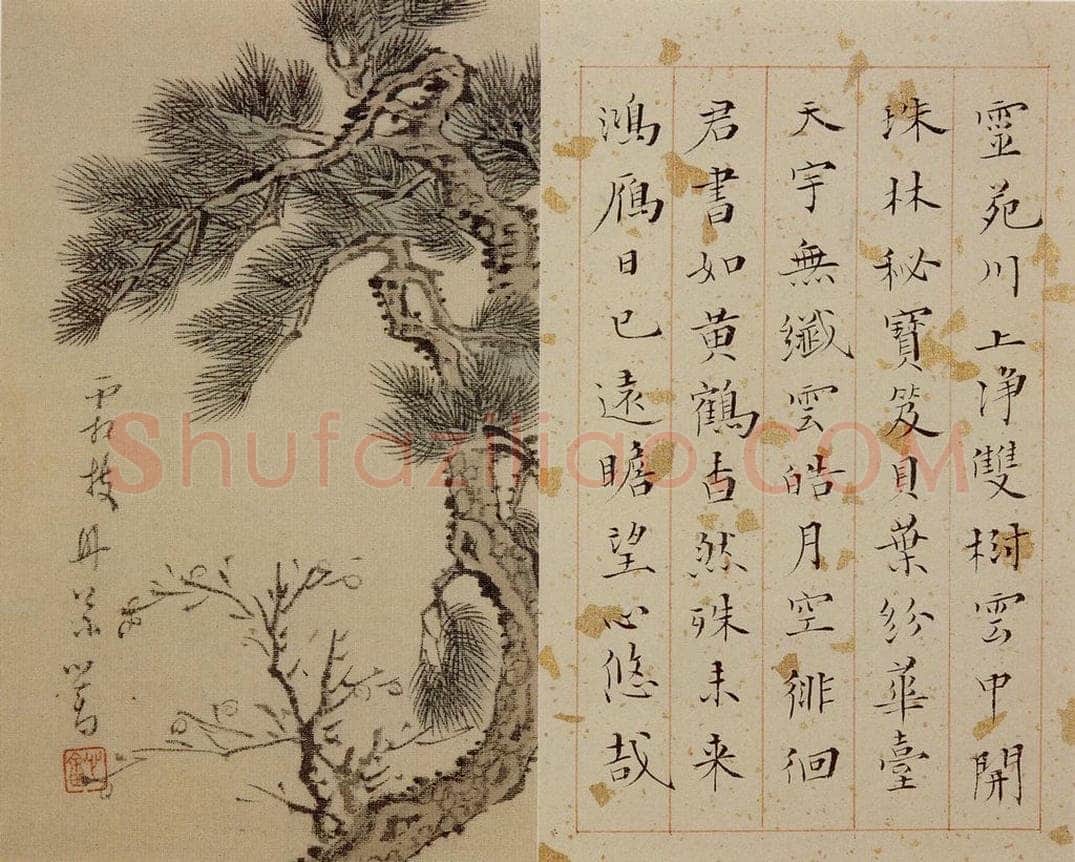 靈苑川上浄雙樹雲中開
珠林秘寶笈貝葉紛華臺
天宇無纖雲皓月空徘徊
君書如黄鶴杳然殊未来
鴻雁日已遠瞻望心悠哉
Shufaziliao.COM